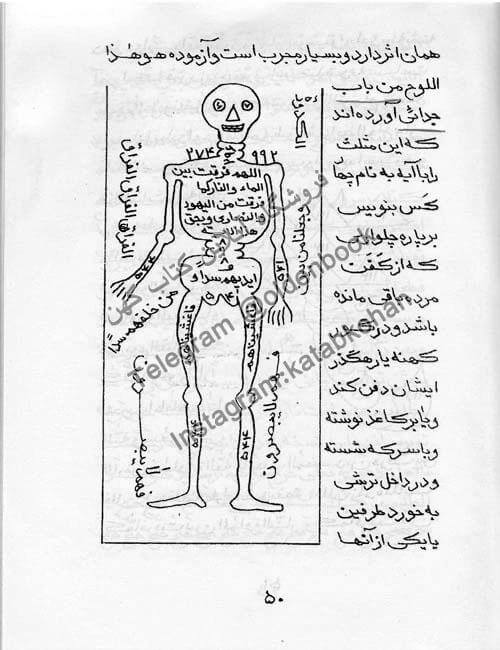 همان اثر دارد و بسیار مجرب است و آزموده هو هذا
اللوح من باب
جدائی آورده اند
که این مثلث
را با آیه به نام چهار
کس بنویس
بر پاره چلواری
که از کفت
مرده باقی مانده
باشد و در گور
کهنه یا رهگذر
ایشان دفن کند
و یا بر کاغذ نوشته
و با سرکه شسته
و در داخل ترشی
به خورد طرفین
یا یکی از آنها
۲۷۴
۹۹۲
اللهم فرقت بین
الماء والنار کما
فرقت من الیهود
والنصاری
الفراق الفراق الفراق
وجعلنا من بین
ایدیهم سداً و
من خلفهم سداً
فاغشیناهم
فاغشیناهم
فهم لا یبصرون
فهم لا یبصرون
۵۴۴
۵۴۴
فروشگاه آنلاین کتاب کهن
Telegram @oldenbook
Instagram:katabkohan
۵۰